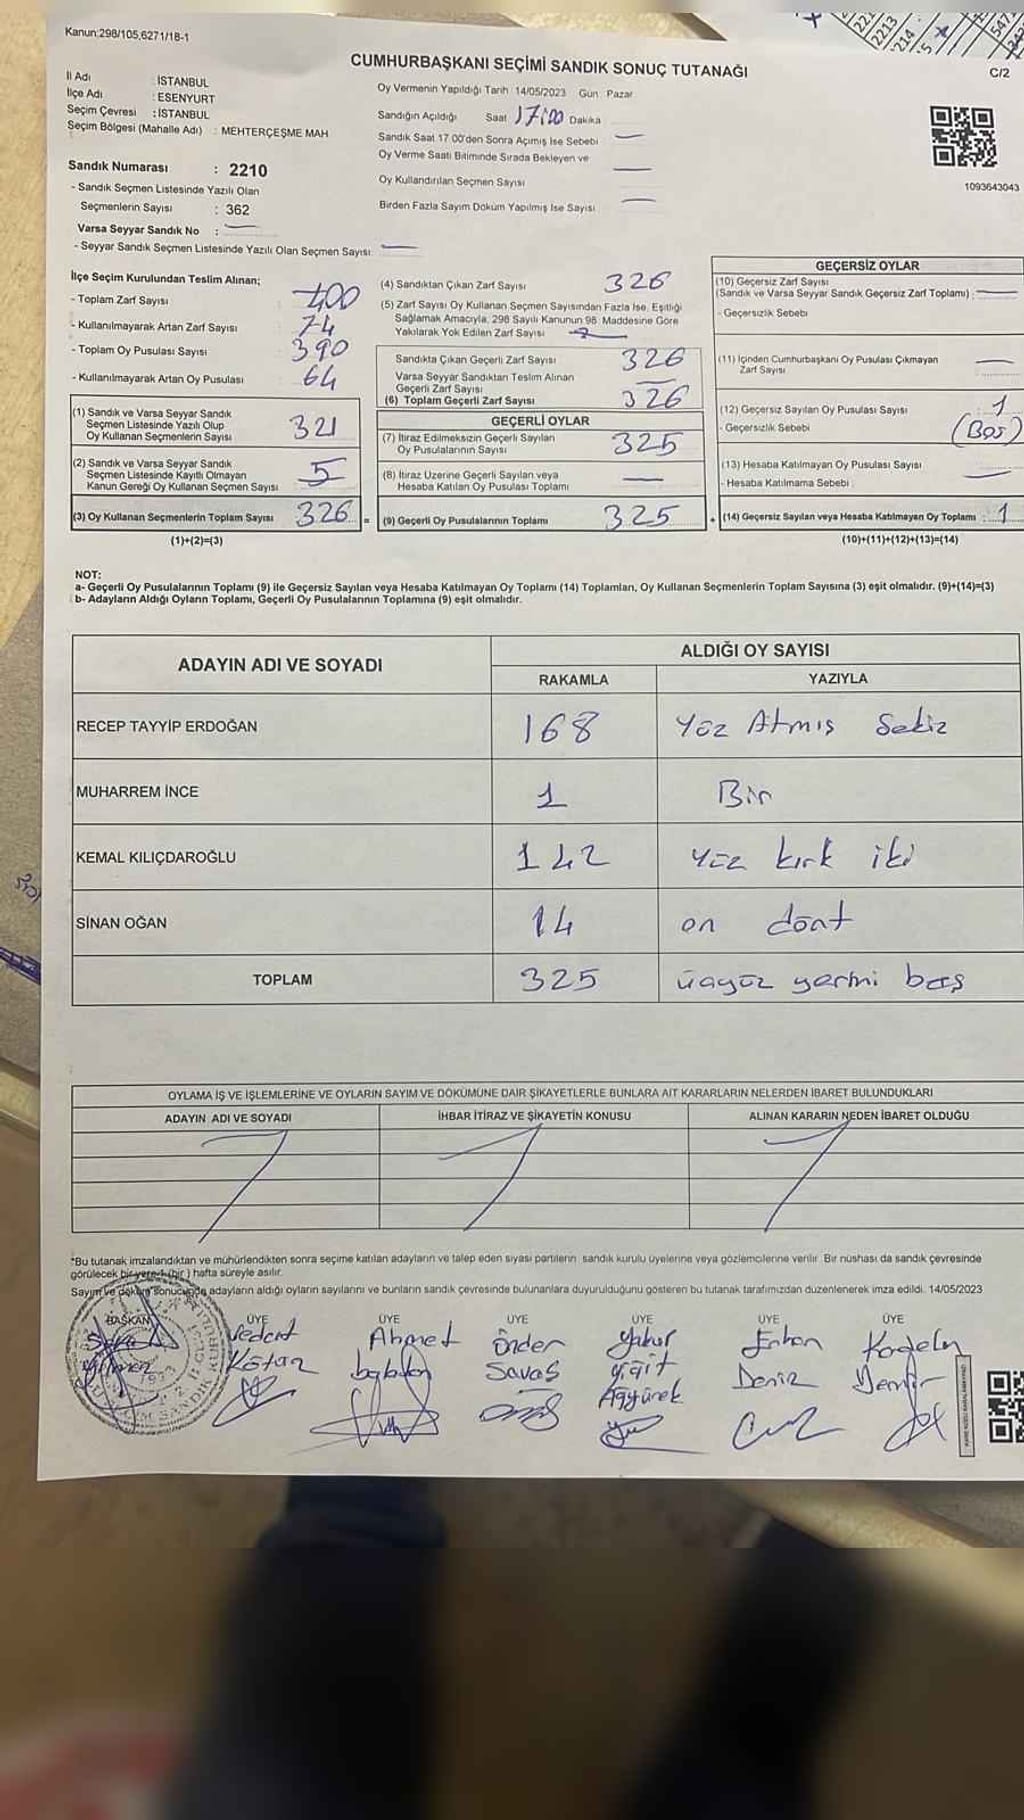 Kanun:298/105,6271/18-1
CUMHURBAŞKANI SEÇİMİ SANDIK SONUÇ TUTANAĞI
C/2
İl Adı : İSTANBUL
İlçe Adı : ESENYURT
Seçim Çevresi : İSTANBUL
Seçim Bölgesi (Mahalle Adı) : MEHTERÇEŞME MAH
Oy Vermenin Yapıldığı Tarih: 14/05/2023 Gün: Pazar
Sandığın Açıldığı Saat 17:00 Dakika
Sandık Saat 17.00'den Sonra Açımış İse Sebebi —
Oy Verme Saati Bitiminde Sırada Bekleyen ve
Oy Kullandırılan Seçmen Sayısı —
Birden Fazla Sayım Döküm Yapılmış İse Sayısı —
1093643043
Sandık Numarası : 2210
- Sandık Seçmen Listesinde Yazılı Olan
Seçmenlerin Sayısı : 362
Varsa Seyyar Sandık No : —
- Seyyar Sandık Seçmen Listesinde Yazılı Olan Seçmen Sayısı: —
İlçe Seçim Kurulundan Teslim Alınan;
- Toplam Zarf Sayısı 400
- Kullanılmayarak Artan Zarf Sayısı 74
- Toplam Oy Pusulası Sayısı 390
- Kullanılmayarak Artan Oy Pusulası 64
(1) Sandık ve Varsa Seyyar Sandık
Seçmen Listesinde Yazılı Olup
Oy Kullanan Seçmenlerin Sayısı 321
(2) Sandık ve Varsa Seyyar Sandık
Seçmen Listesinde Kayıtlı Olmayan
Kanun Gereği Oy Kullanan Seçmen Sayısı 5
(3) Oy Kullanan Seçmenlerin Toplam Sayısı 326 =
(1)+(2)=(3)
(4) Sandıktan Çıkan Zarf Sayısı 326
(5) Zarf Sayısı Oy Kullanan Seçmen Sayısından Fazla İse, Eşitliği
Sağlamak Amacıyla, 298 Sayılı Kanunun 98. Maddesine Göre
Yakılarak Yok Edilen Zarf Sayısı
Sandıkta Çıkan Geçerli Zarf Sayısı 326
Varsa Seyyar Sandıktan Teslim Alınan
Geçerli Zarf Sayısı —
(6) Toplam Geçerli Zarf Sayısı 326
GEÇERLİ OYLAR
(7) İtiraz Edilmeksizin Geçerli Sayılan
Oy Pusulalarının Sayısı 325
(8) İtiraz Üzerine Geçerli Sayılan veya
Hesaba Katılan Oy Pusulası Toplamı —
(9) Geçerli Oy Pusulalarının Toplamı 325 +
GEÇERSİZ OYLAR
(10) Geçersiz Zarf Sayısı
(Sandık ve Varsa Seyyar Sandık Geçersiz Zarf Toplamı) : —
- Geçersizlik Sebebi
(11) İçinden Cumhurbaşkanı Oy Pusulası Çıkmayan
Zarf Sayısı —
(12) Geçersiz Sayılan Oy Pusulası Sayısı 1
- Geçersizlik Sebebi (Boş)
(13) Hesaba Katılmayan Oy Pusulası Sayısı —
- Hesaba Katılmama Sebebi
(14) Geçersiz Sayılan veya Hesaba Katılmayan Oy Toplamı : 1
(10)+(11)+(12)+(13)=(14)
NOT:
a- Geçerli Oy Pusulalarının Toplamı (9) ile Geçersiz Sayılan veya Hesaba Katılmayan Oy Toplamı (14) Toplamları, Oy Kullanan Seçmenlerin Toplam Sayısına (3) eşit olmalıdır. (9)+(14)=(3)
b- Adayların Aldığı Oyların Toplamı, Geçerli Oy Pusulalarının Toplamına (9) eşit olmalıdır.
ADAYIN ADI VE SOYADI ALDIĞI OY SAYISI
RAKAMLA YAZIYLA
RECEP TAYYİP ERDOĞAN 168 Yüz Atmış Sekiz
MUHARREM İNCE 1 Bir
KEMAL KILIÇDAROĞLU 142 Yüz kırk iki
SİNAN OĞAN 14 on dört
TOPLAM 325 üçyüz yermi beş
OYLAMA İŞ VE İŞLEMLERİNE VE OYLARIN SAYIM VE DÖKÜMÜNE DAİR ŞİKAYETLERLE BUNLARA AİT KARARLARIN NELERDEN İBARET BULUNDUKLARI
ADAYIN ADI VE SOYADI İHBAR İTİRAZ VE ŞİKAYETİN KONUSU ALINAN KARARIN NEDEN İBARET OLDUĞU
*Bu tutanak imzalandıktan ve mühürlendikten sonra seçime katılan adayların ve talep eden siyasi partilerin, sandık kurulu üyelerine veya gözlemcilerine verilir. Bir nüshası da sandık çevresinde
görülecek bir yere 1 (bir ) hafta süreyle asılır.
Sayım ve döküm sonucunda adayların aldığı oyların sayılarını ve bunların sandık çevresinde bulunanlara duyurulduğunu gösteren bu tutanak tarafımızdan düzenlenerek imza edildi. 14/05/2023
BAŞKAN ÜYE ÜYE ÜYE ÜYE ÜYE ÜYE
Vedat Ahmet Önder Yakup Erhan
Savaş Yiğit Deniz Demir